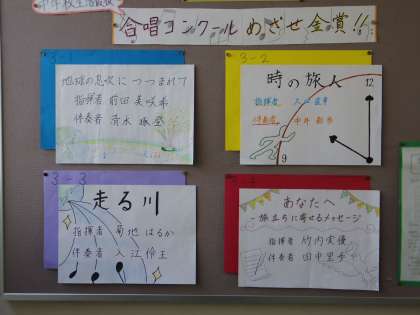 合唱コンクール めざせ金賞!!
3-1
地球の息吹につつまれて
指揮者 前田 美咲希
伴奏者 清水
3-2
時の旅人
12
指揮者
伴奏者
9
3-3
走る川
指揮者 菊地 はるか
伴奏者 入江 伶王
あなたへ
-旅立ちに寄せるメッセージ
指揮者 竹内 実優
伴奏者 田中 里歩